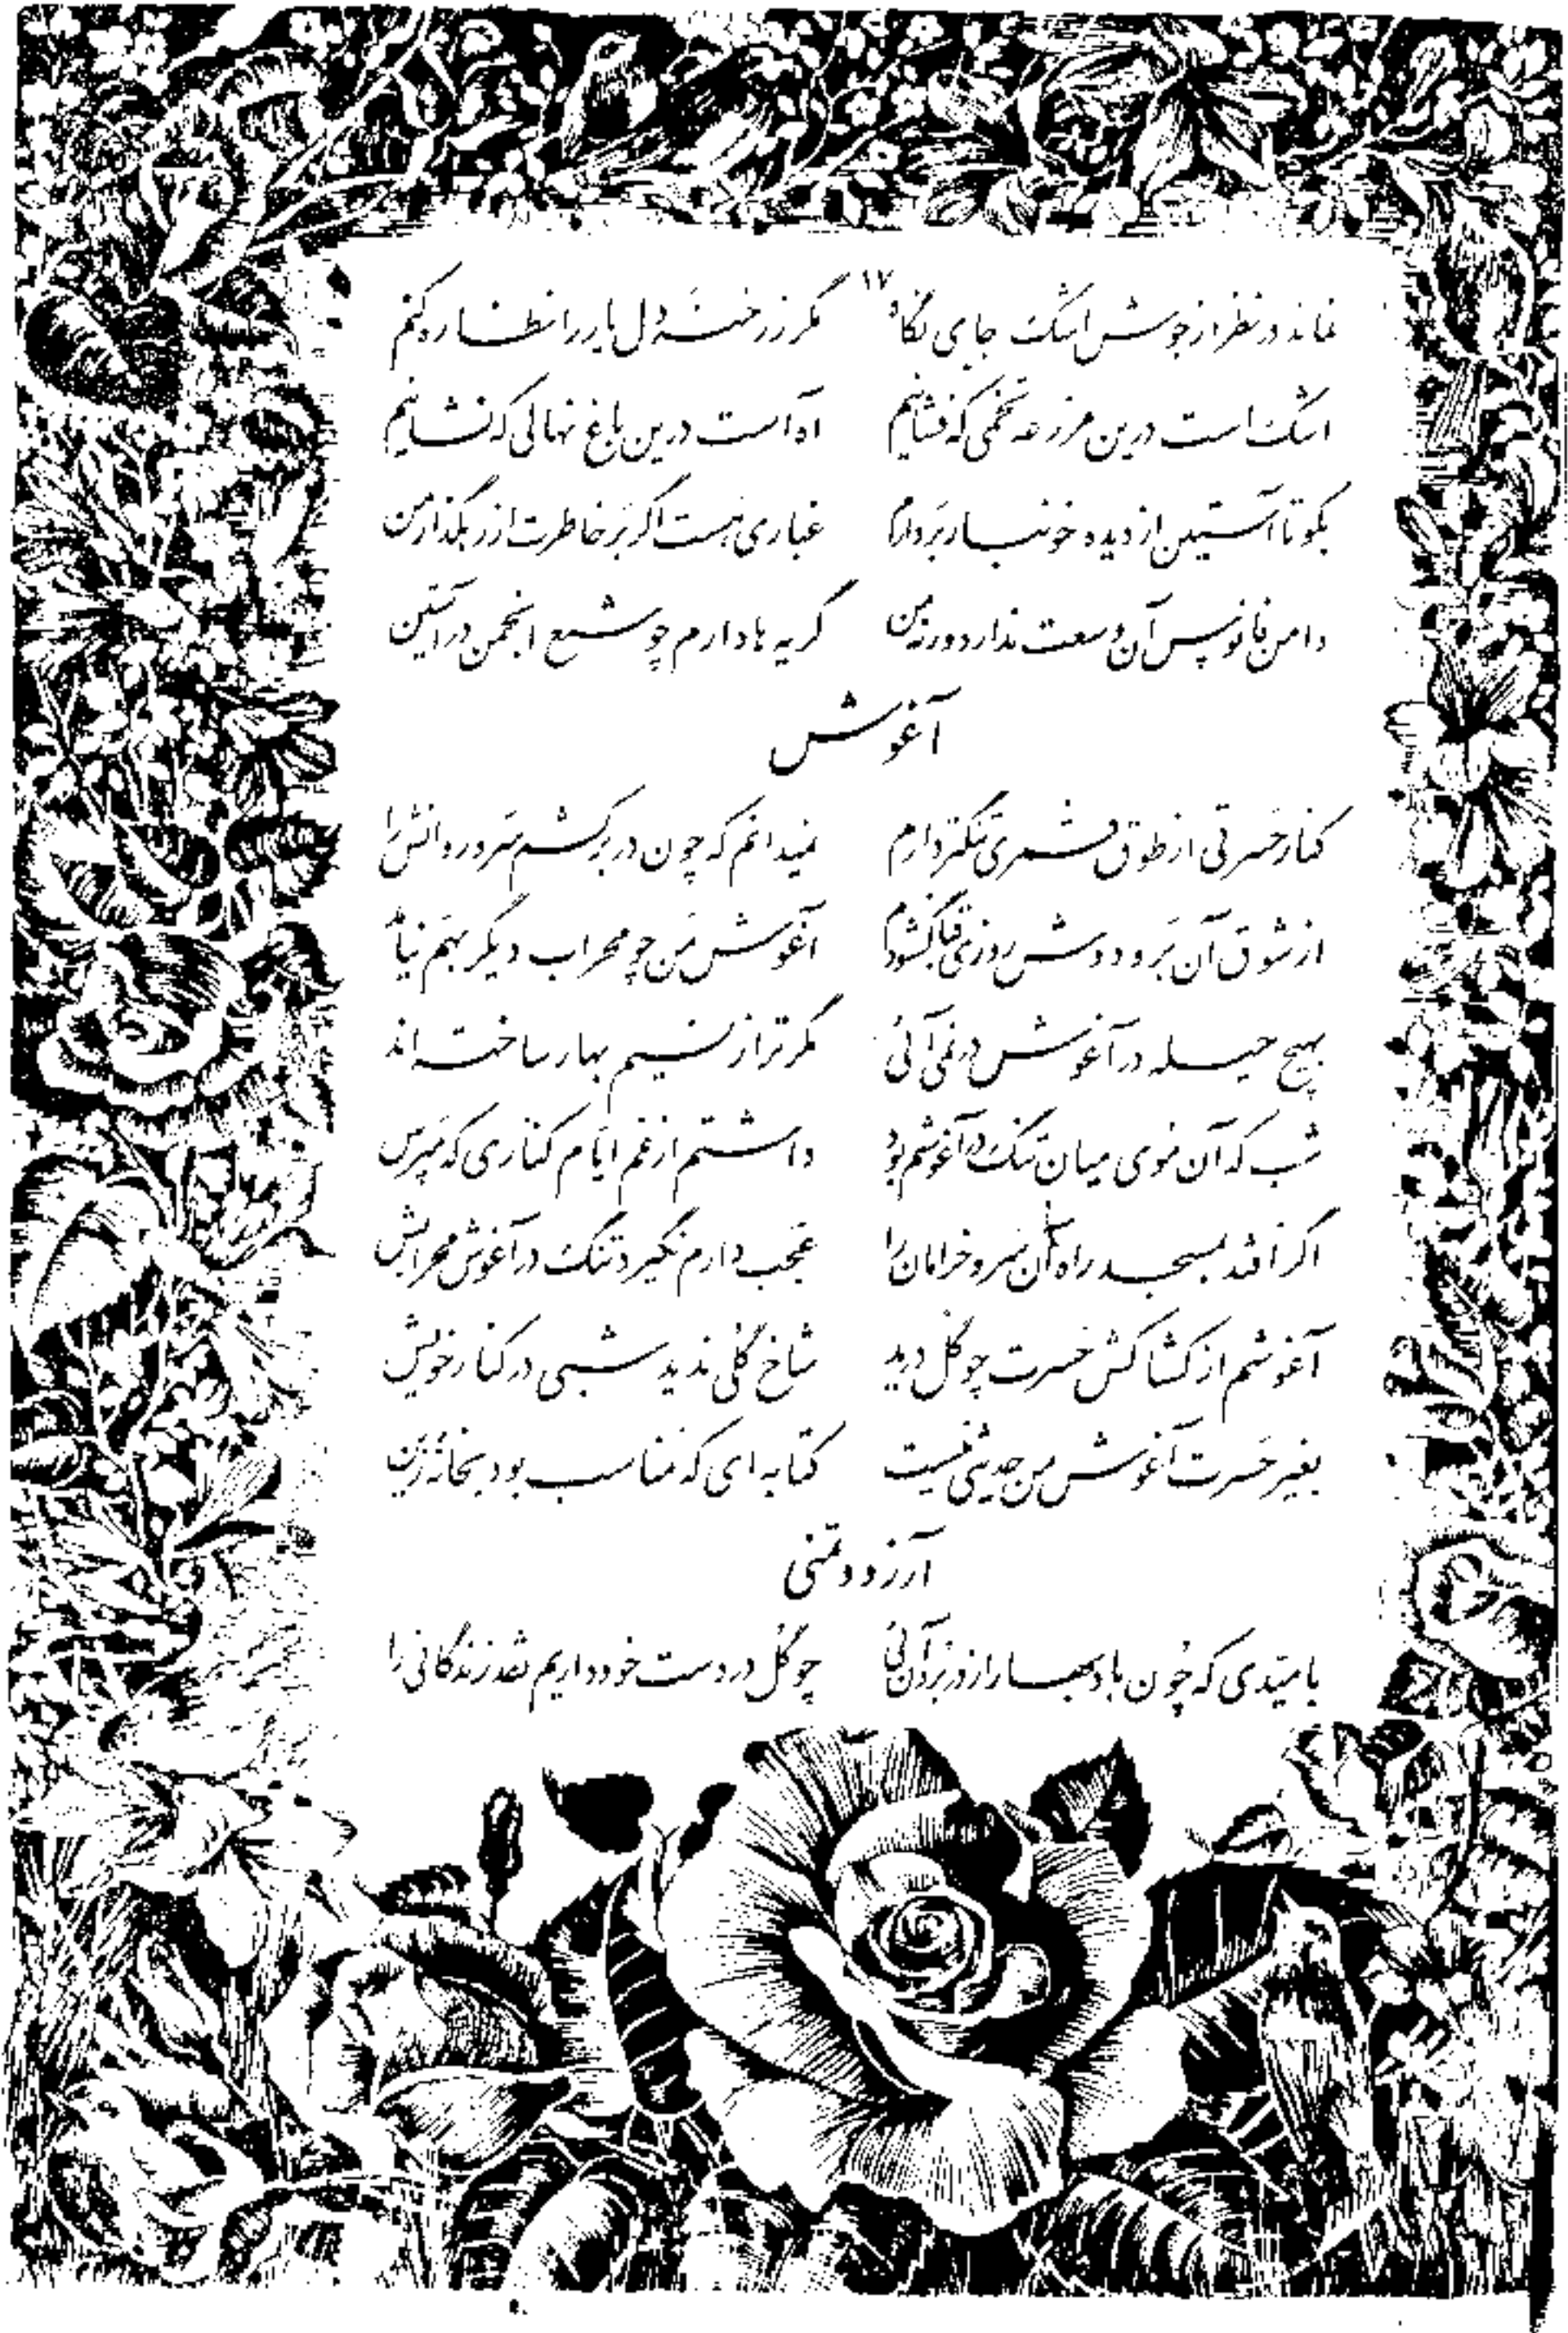 ۱۷
نماند در نظر از جوش اشک جای نگاه مگر ز رخنهٔ دل یار را نظاره کنم
اشک است درین مزرعه تخمی که فشانیم آه است درین باغ نهالی که نشانیم
بگو تا آستین از دیده خونبار بردارم غباری هست اگر بر خاطرت از رهگذار من
دامن فانوس آن وسعت ندارد ورنه من گریه ها دارم چو شمع انجمن در آستین
آغوش
کنار حسرتی از طوق قمری تنگتر دارم نمیدانم که چون در بر کشم سرو روانش را
از شوق آن بر و دوش روزی قبا گشودم آغوش من چو محراب دیگر بهم نیامد
بهیچ حیله در آغوش در نمی آئی مگر ترا ز نسیم بهار ساخته اند
شب که آن موی میان تنگ در آغوشم بود داشتم از غم ایام کناری که مپرس
اگر افتد بمسجد راه آن سرو خرامان را عجب دارم نگیرد تنگ در آغوش محرابش
آغوشم از کشاکش حسرت چو گل درید شاخ گلی ندید شبی در کنار خویش
بغیر حسرت آغوش من حدیثی نیست کتابه ای که مناسب بود بخانهٔ زین
آرزو و تمنی
بامیدی که چون باد بهار از در برون آئی چو گل در دست خود داریم نقد زندگانی را